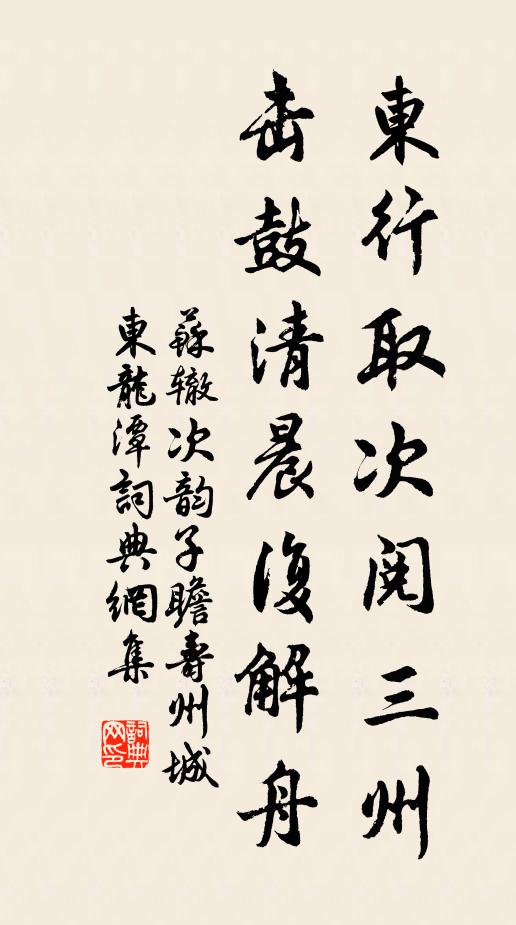 東行取次閱三州
击鼓清晨復解舟
蘇辙次韵子瞻壽州城
東龍潭詞典網集
詞典网印